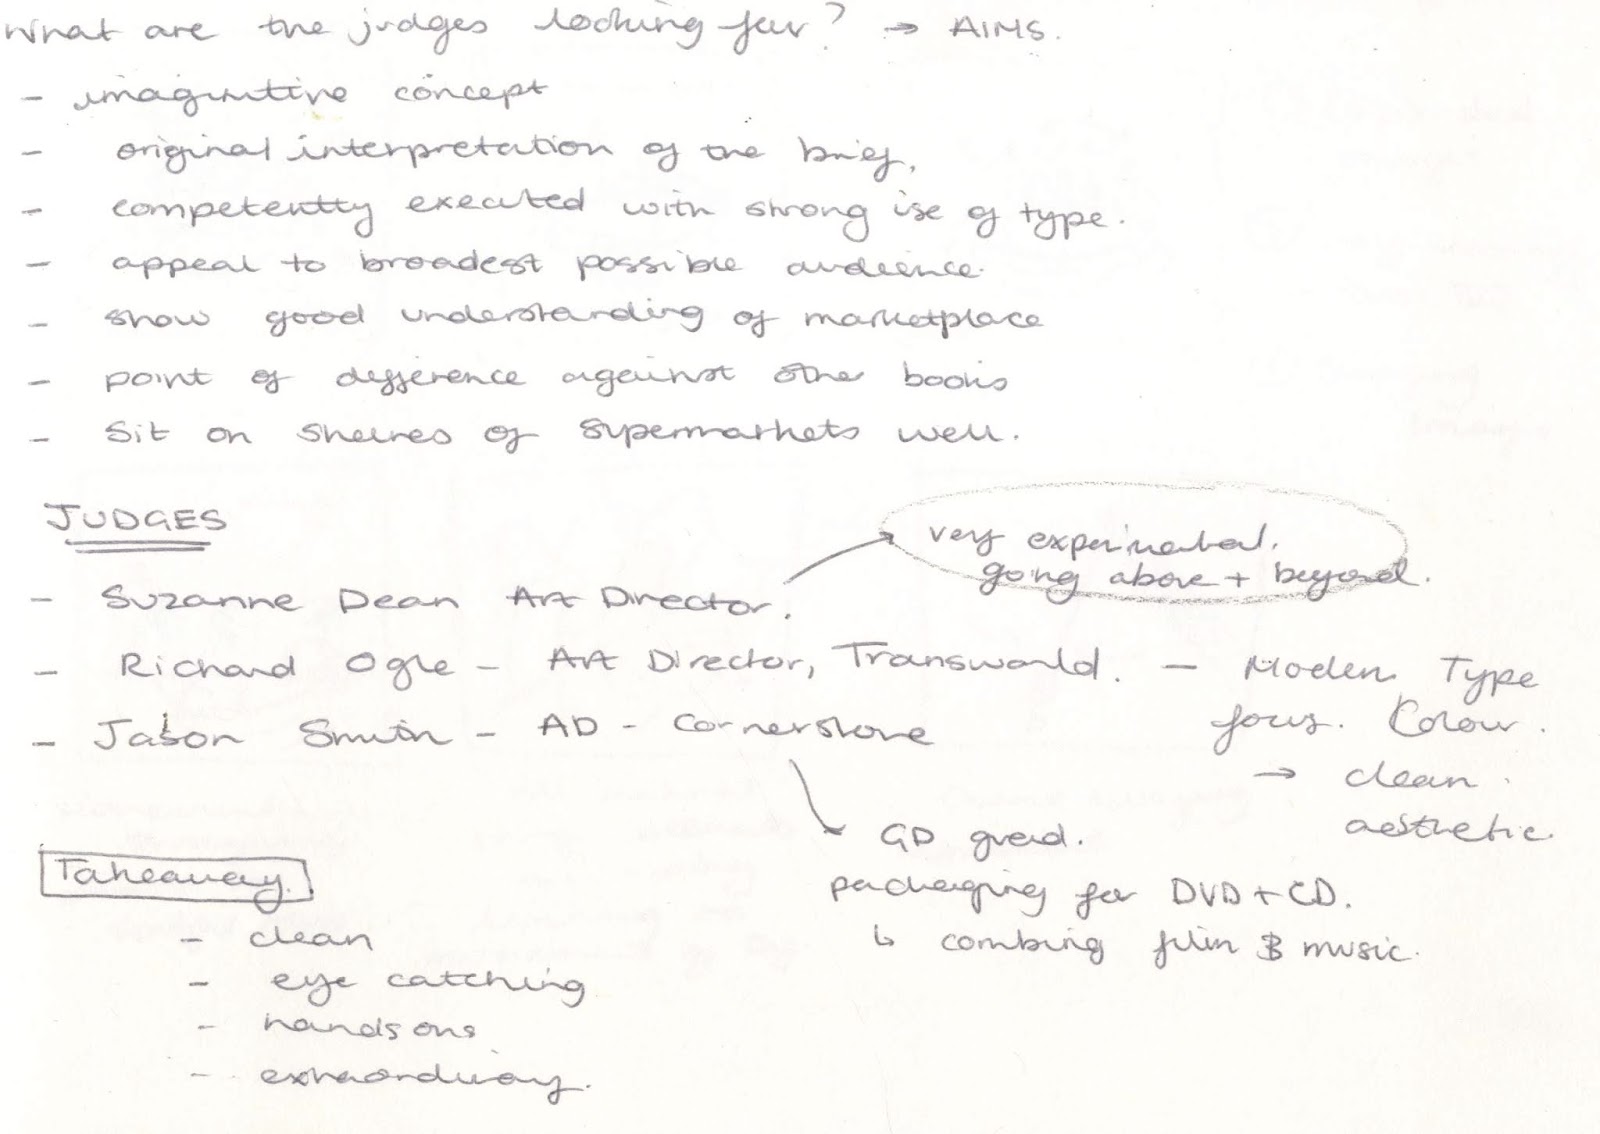 What are the judges looking for? → AIMS.
- imaginitive concept
- original interpretation of the brief,
- competently executed with strong use of type.
- appeal to broadest possible audience.
- show good understanding of marketplace
- point of difference against other books
- Sit on shelves of supermarkets well.
JUDGES
very experimental.
going above + beyond.
- Suzanne Dean Art Director.
- Richard Ogle - Art Director, Transworld. - Modern Type
focus. Colour.
- Jason Smith - AD - Cornerstone
→ clean.
aesthetic.
GD grad.
packaging for DVD + CD.
↳ combing film & music.
Takeaway.
- clean
- eye catching
- hands ons
- extraordinary.